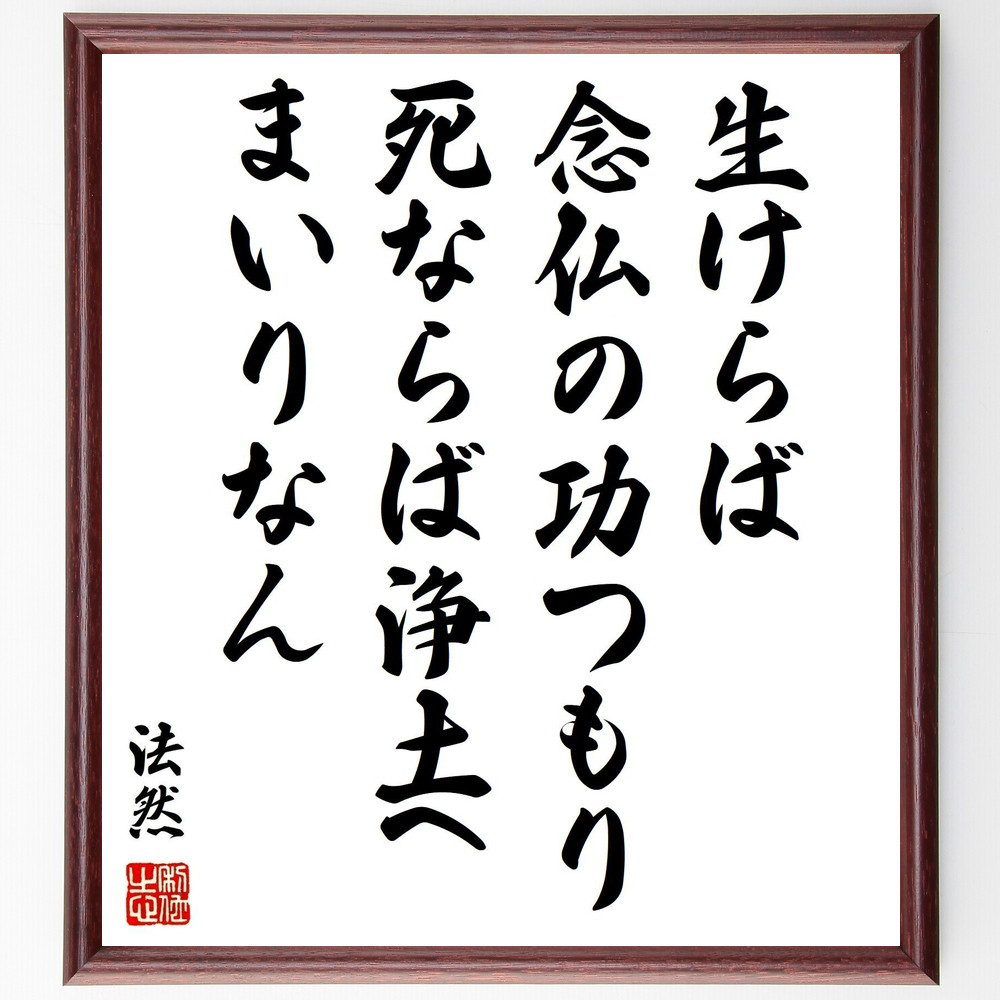 生けらば
念仏の功つもり
死ならば浄土へ
まいりなん
法然